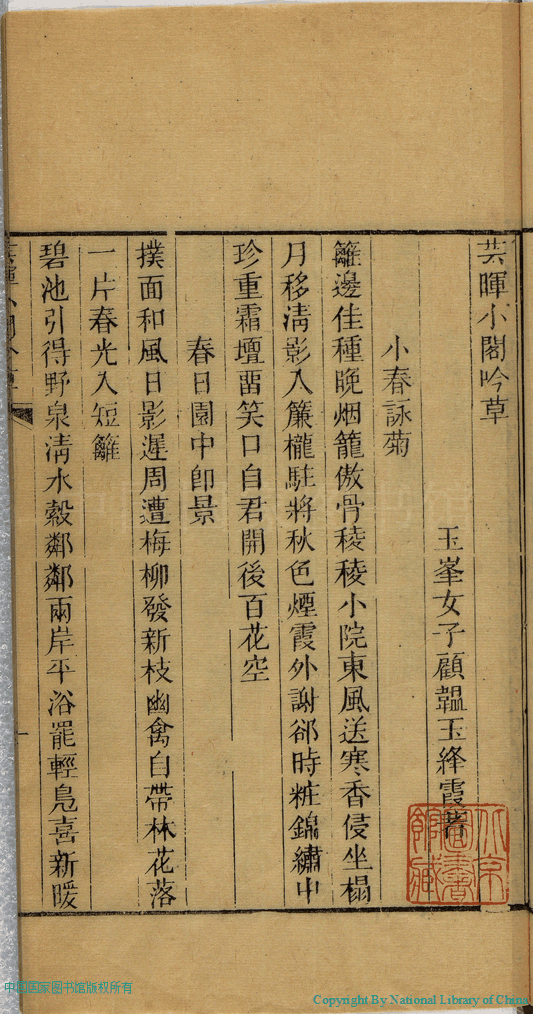 芸暉小閣吟草
玉峯女子顧韞玉絳霞著
小春詠菊
籬邊佳種晚烟籠傲骨稜稜小院東風送寒香侵坐榻
月移淸影入簾櫳駐將秋色煙霞外謝郤時粧錦繡中
珍重霜壇畱笑口自君開後百花空
春日園中卽景
撲面和風日影遲周遭梅柳發新枝幽禽自帶林花落
一片春光入短籬
碧池引得野泉淸水縠鄰鄰兩岸平浴罷輕鳧喜新暖
芸暉小閣吟草
一
北京圖書館藏
中国国家图书馆版权所有
Copyright By National Library of China